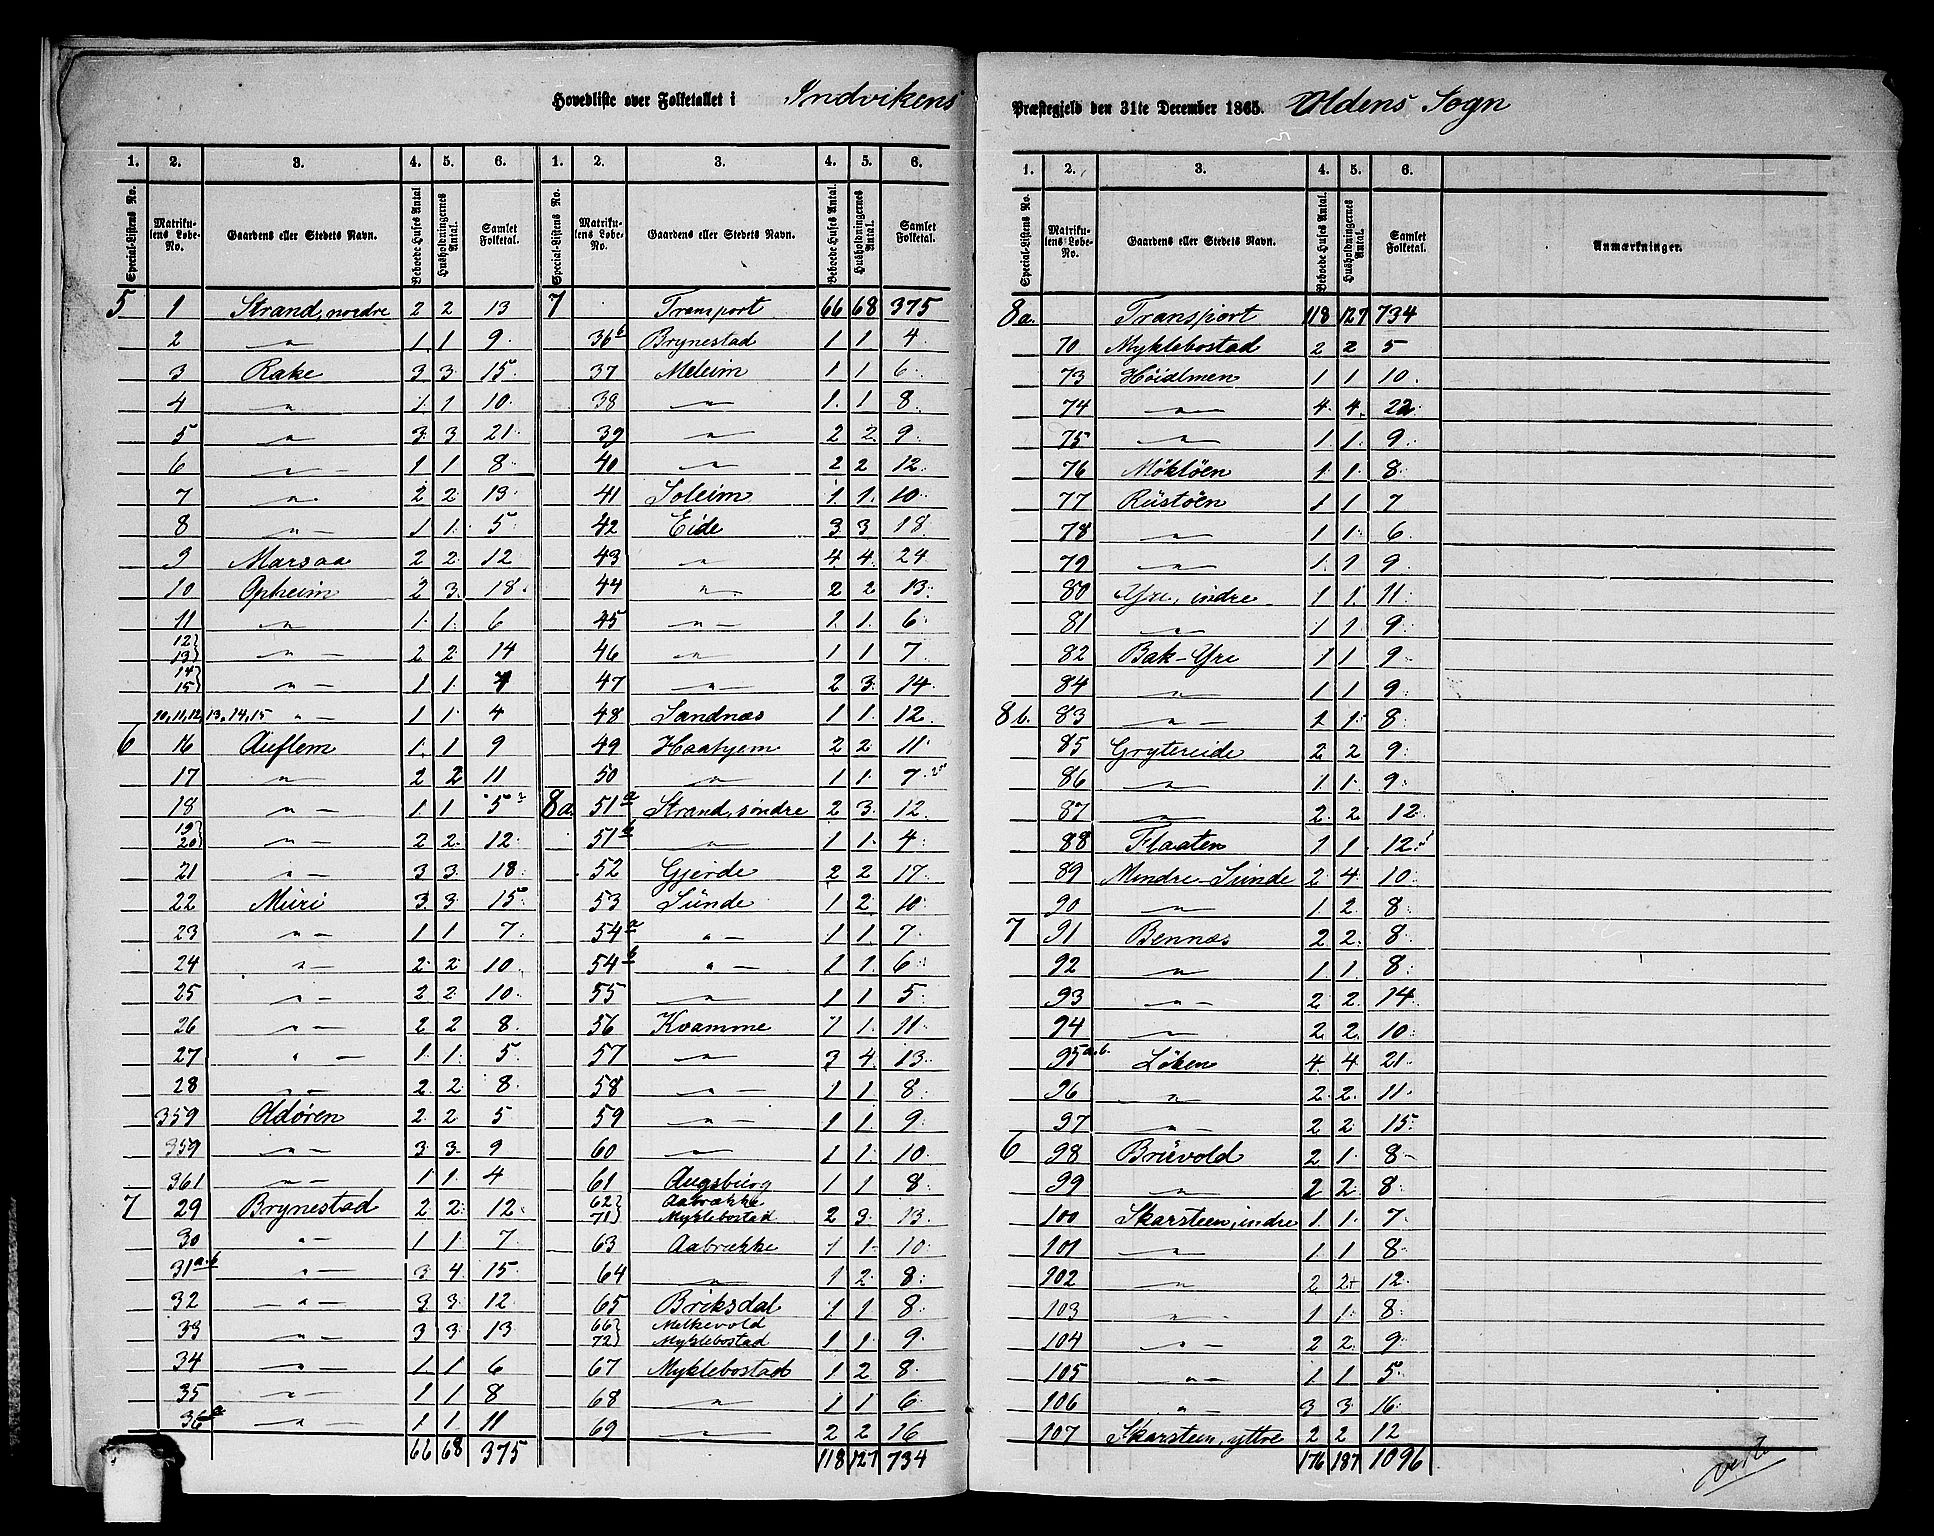 Hovedliste over Folketallet i Indvikens Præstegjeld den 31te December 1865. Oldens Sogn
1. 2. 3. 4. 5. 6. 1. 2. 3. 4. 5. 6.
Special-Listens No. Matrikulens Løbe-No. Gaardens eller Stedets Navn. Beboede Huses Antal Husholdningernes Antal. Samlet Folketal. Special-Listens No. Matrikulens Løbe-No. Gaardens eller Stedets Navn. Beboede Huses Antal. Husholdningernes Antal. Samlet Folketal.
5 1 Strand, nordre 2 2 13 7 Transport 66 68 375
2 " 1 1 9 36b Brynestad 1 1 4
3 Rake 3 3 15 37 Meleim 1 1 6
4 " 1 1 10 38 " 1 1 8
5 " 3 3 21 39 " 2 2 9
6 " 1 1 8 40 " 2 2 12
7 " 2 2 13 41 Soleim 1 1 10
8 " 1 1 5 42 Eide 3 3 18
9 Marsaa 2 2 12 43 " 4 4 24
10 Opheim 2 3 18 44 " 2 2 13
11 " 1 1 6 45 " 1 1 6
12 13 " 2 2 14 46 " 1 1 7
14 15 " 1 1 7 47 " 2 3 14
10, 11, 12, 13, 14, 15 " 1 1 4 48 Sandnæs 1 1 12
6 16 Auflem 1 1 9 49 Haahjem 2 2 11
17 " 2 2 11 50 " 1 1 7
18 " 1 1 5 8a. 51a Strand, søndre 2 3 12
19 20 " 2 2 12 51b " 1 1 4
21 " 3 3 18 52 Gjerde 2 2 17
22 Muri 3 3 15 53 Sunde 1 2 10
23 " 1 1 7 54a " 1 1 7
24 " 2 2 10 54b " 1 1 6
25 " 2 2 10 55 " 1 1 5
26 " 2 2 8 56 Kvamme 1 1 11
27 " 1 1 5 57 " 3 4 13
28 " 2 2 8 58 " 1 1 8
359 Oldøren 2 2 5 59 " 1 1 9
359 " 3 3 9 60 " 1 1 10
361 " 1 1 4 61 Augsburg 1 1 8
7 29 Brynestad 2 2 12 62 71 Aabrække Myklebostad 2 3 13
30 " 1 1 7 63 Aabrække 1 1 10
31a.b " 3 4 15 64 " 1 2 8
32 " 3 3 12 65 Briksdal 1 1 8
33 " 3 3 13 66 72 Melkevold Myklebostad 1 1 9
34 " 1 1 6 67 Myklebostad 1 2 8
35 " 1 1 8 68 " 1 1 6
36a " 1 1 11 69 " 2 2 16
66 68 375 118 127 734
1. 2. 3. 4. 5. 6.
Special-Listens No. Matrikulens Løbe-No. Gaardens eller Stedets Navn. Beboede Huses Antal. Husholdningernes Antal. Samlet Folketal. Anmærkninger.
8a. Transport 118 127 734
70 Myklebostad 2 2 5
73 Høidlmen 1 1 10
74 " 4 4 22
75 " 1 1 9
76 Møkløen 1 1 8
77 Rustøen 1 1 7
78 " 1 1 6
79 " 1 1 9
80 Yre, indre 1 1 11
81 " 1 1 9
82 Bak-Yre 1 1 9
84 " 1 1 9
8b. 83 " 1 1 8
85 Grytereide 2 2 9
86 " 1 1 9
87 " 2 2 12
88 Flaaten 1 1 12
89 Mindre-Sunde 2 4 10
90 " 1 2 8
7 91 Bennæs 2 2 8
92 " 1 1 8
93 " 2 2 14
94 " 2 2 10
95a.b. Løken 4 4 21
96 " 2 2 11
97 " 2 2 15
6 98 Bruvold 2 1 8
99 " 2 2 8
100 Skarsteen, indre 1 1 7
101 " 1 1 8
102 " 2 2 12
103 " 1 1 8
104 " 2 2 9
105 " 1 1 5
106 " 3 3 16
107 Skarsteen, yttre 2 2 12
176 187 1096